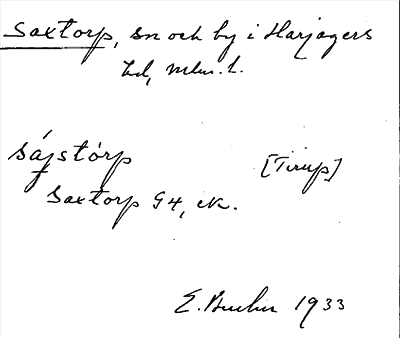 Saxtorp, sn och by i Harjagers
hd, Mlm. l.
sájstòrp [Tirup]
Saxtorp G4, ek.
E. 1933